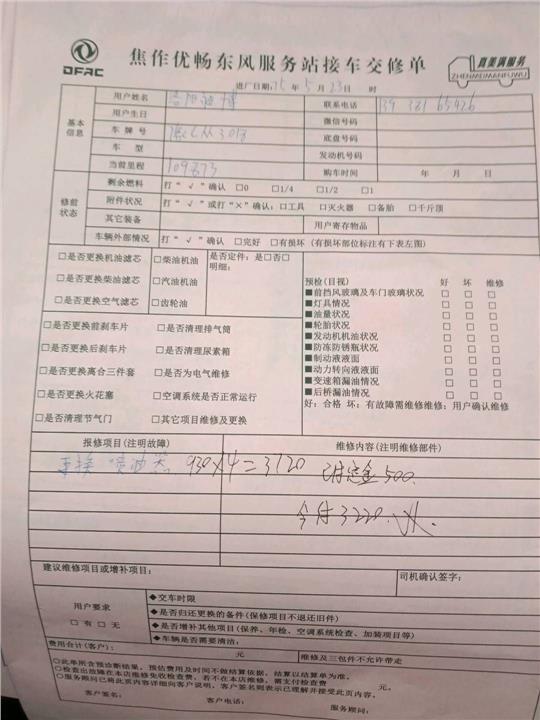 DFAC
焦作优畅东风服务站接车交修单
真美满服务
ZHENMEIMANFUWU
进厂日期:15 年 5 月 23日 时
基本信息
用户姓名
联系电话
用户生日
微信号码
车牌号
底盘号码
车型
发动机号码
当前里程 109873
购车时间 年 月 日
修前状态
剩余燃料 打“√”确认 □0 □1/4 □1/2 □1
附件状况 打“√”或打“×”确认:□工具 □灭火器 □备胎 □千斤顶
其它装备
用户寄存物品
车辆外部情况 打“√”确认 □完好 □有损坏(有损坏部位标注有下表左图)
□是否更换机油滤芯 □柴油机油
□是否更换柴油滤芯 □汽油机油
□是否更换空气滤芯 □齿轮油
是否定件:是□否□
明细:
□是否更换前刹车片 □是否清理排气筒
□是否更换后刹车片 □是否清理尿素箱
□是否更换离合三件套 □是否为电气维修
□是否更换火花塞 □空调系统是否正常运行
□是否清理节气门 □其它项目维修及更换
预检(目视) 好 坏 维修
■前挡风玻璃及车门玻璃状况 □ □ □
■灯具情况 □ □ □
■油量状况 □ □ □
■轮胎状况 □ □ □
■发动机机油状况 □ □ □
■防冻防锈瓶状况 □ □ □
■制动液液面 □ □ □
■动力转向液液面 □ □ □
■变速箱漏油情况 □ □ □
■后桥漏油情况 □ □ □
好:合格 坏:有故障需维修维修:用户确认维修
报修项目(注明故障)
维修内容(注明维修部件)
喷油器 930×4=3720 已付定金500.
今付3220.
建议维修项目或增补项目:
司机确认签字:
用户要求
□有 □无
◆交车时限
◆是否归还更换的备件(保修项目不退还旧件)
◆是否增补其他项目(保养、年检、空调系统检查、加装项目等)
◆车辆是否需要清洁:
费用合计(客户): 元
维修及三包件不允许带走
○此单所含预诊断结果,预估费用及时间不做结算依据,结算以结算单为准。
○检查出故障在本店维修免收检查费,若不在本店维修,需支付检查费 元。
○服务顾问已将此页内容详细向客户说明,客户签名则表示已理解并接受此页内容。
客户签名: 客户电话: 服务顾问: